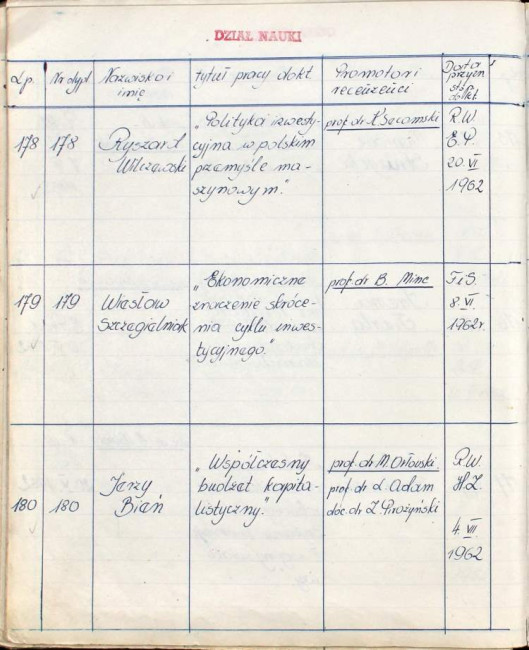 DZIAŁ NAUKI
Lp. Nr dypl. Nazwisko i imię tytuł pracy dokt. Promotori recenzenci Data przyzn. stp. dokt.
178 178 Ryszard Wilczewski
„Polityka inwesty-
cyjna w polskim
przemyśle ma-
szynowym."
prof. dr K. Secomski
R.W.
E.P.
20. VI
1962
179 179 Wiesław
Szczegielniak
„Ekonomiczne
znaczenie skróce-
nia cyklu inwes-
tycyjnego."
prof. dr B. Minc
F i S.
8. VI.
1962 r.
180 180 Jerzy
Bień
„Współczesny
budżet kapita-
listyczny."
prof. dr M. Orłowski
prof. dr L. Adam
doc. dr Z. Pirożyński
R.W.
H.Z.
4. VII
1962